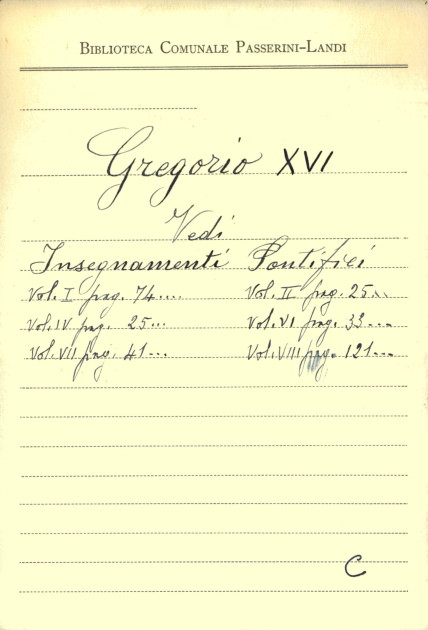 BIBLIOTECA COMUNALE PASSERINI-LANDI
Gregorio XVI
Vedi
Insegnamenti Pontifici
Vol. I pag. 74.... Vol. II pag. 25...
Vol. IV pag. 25... Vol. VI pag. 33...
Vol. VII pag. 41... Vol. VIII pag. 121...
C